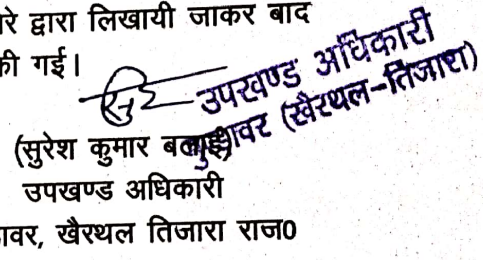 रे द्वारा लिखायी जाकर बाद
की गई।
उपखण्ड अधिकारी
(खैरथल-तिजारा)
(सुरेश कुमार
उपखण्ड अधिकारी
ावर, खैरथल तिजारा राज0